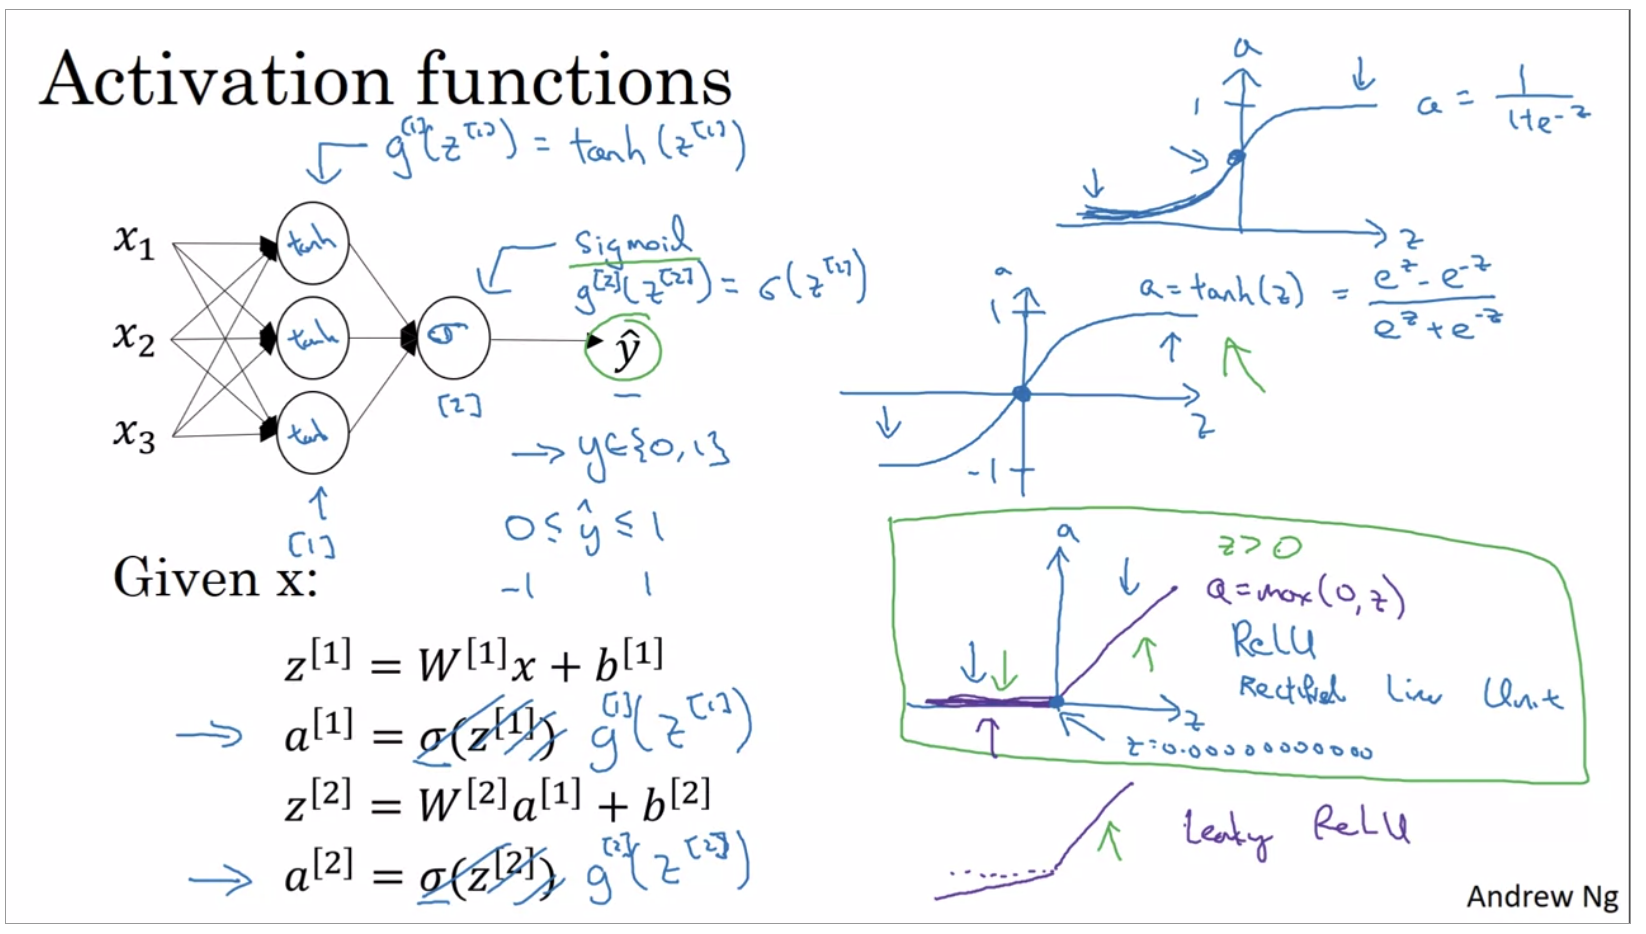 Activation functions
g^[1](z^[1]) = tanh(z^[1])
x₁
x₂
x₃
tanh
tanh
tanh
[1]
σ
[2]
Sigmoid
g^[2](z^[2]) = σ(z^[2])
ŷ
→ y∈{0,1}
0 ≤ ŷ ≤ 1
-1 1
Given x:
z^[1] = W^[1]x + b^[1]
→ a^[1] = σ(z^[1]) g^[1](z^[1])
z^[2] = W^[2]a^[1] + b^[2]
→ a^[2] = σ(z^[2]) g^[2](z^[2])
a
1
z
a = 1/(1+e^-z)
a
1
-1
z
a = tanh(z) = (e^z - e^-z)/(e^z + e^-z)
a
z
z > 0
a = max(0,z)
ReLU
Rectified Unit
z=0.000000000000
Leaky ReLU
Andrew Ng